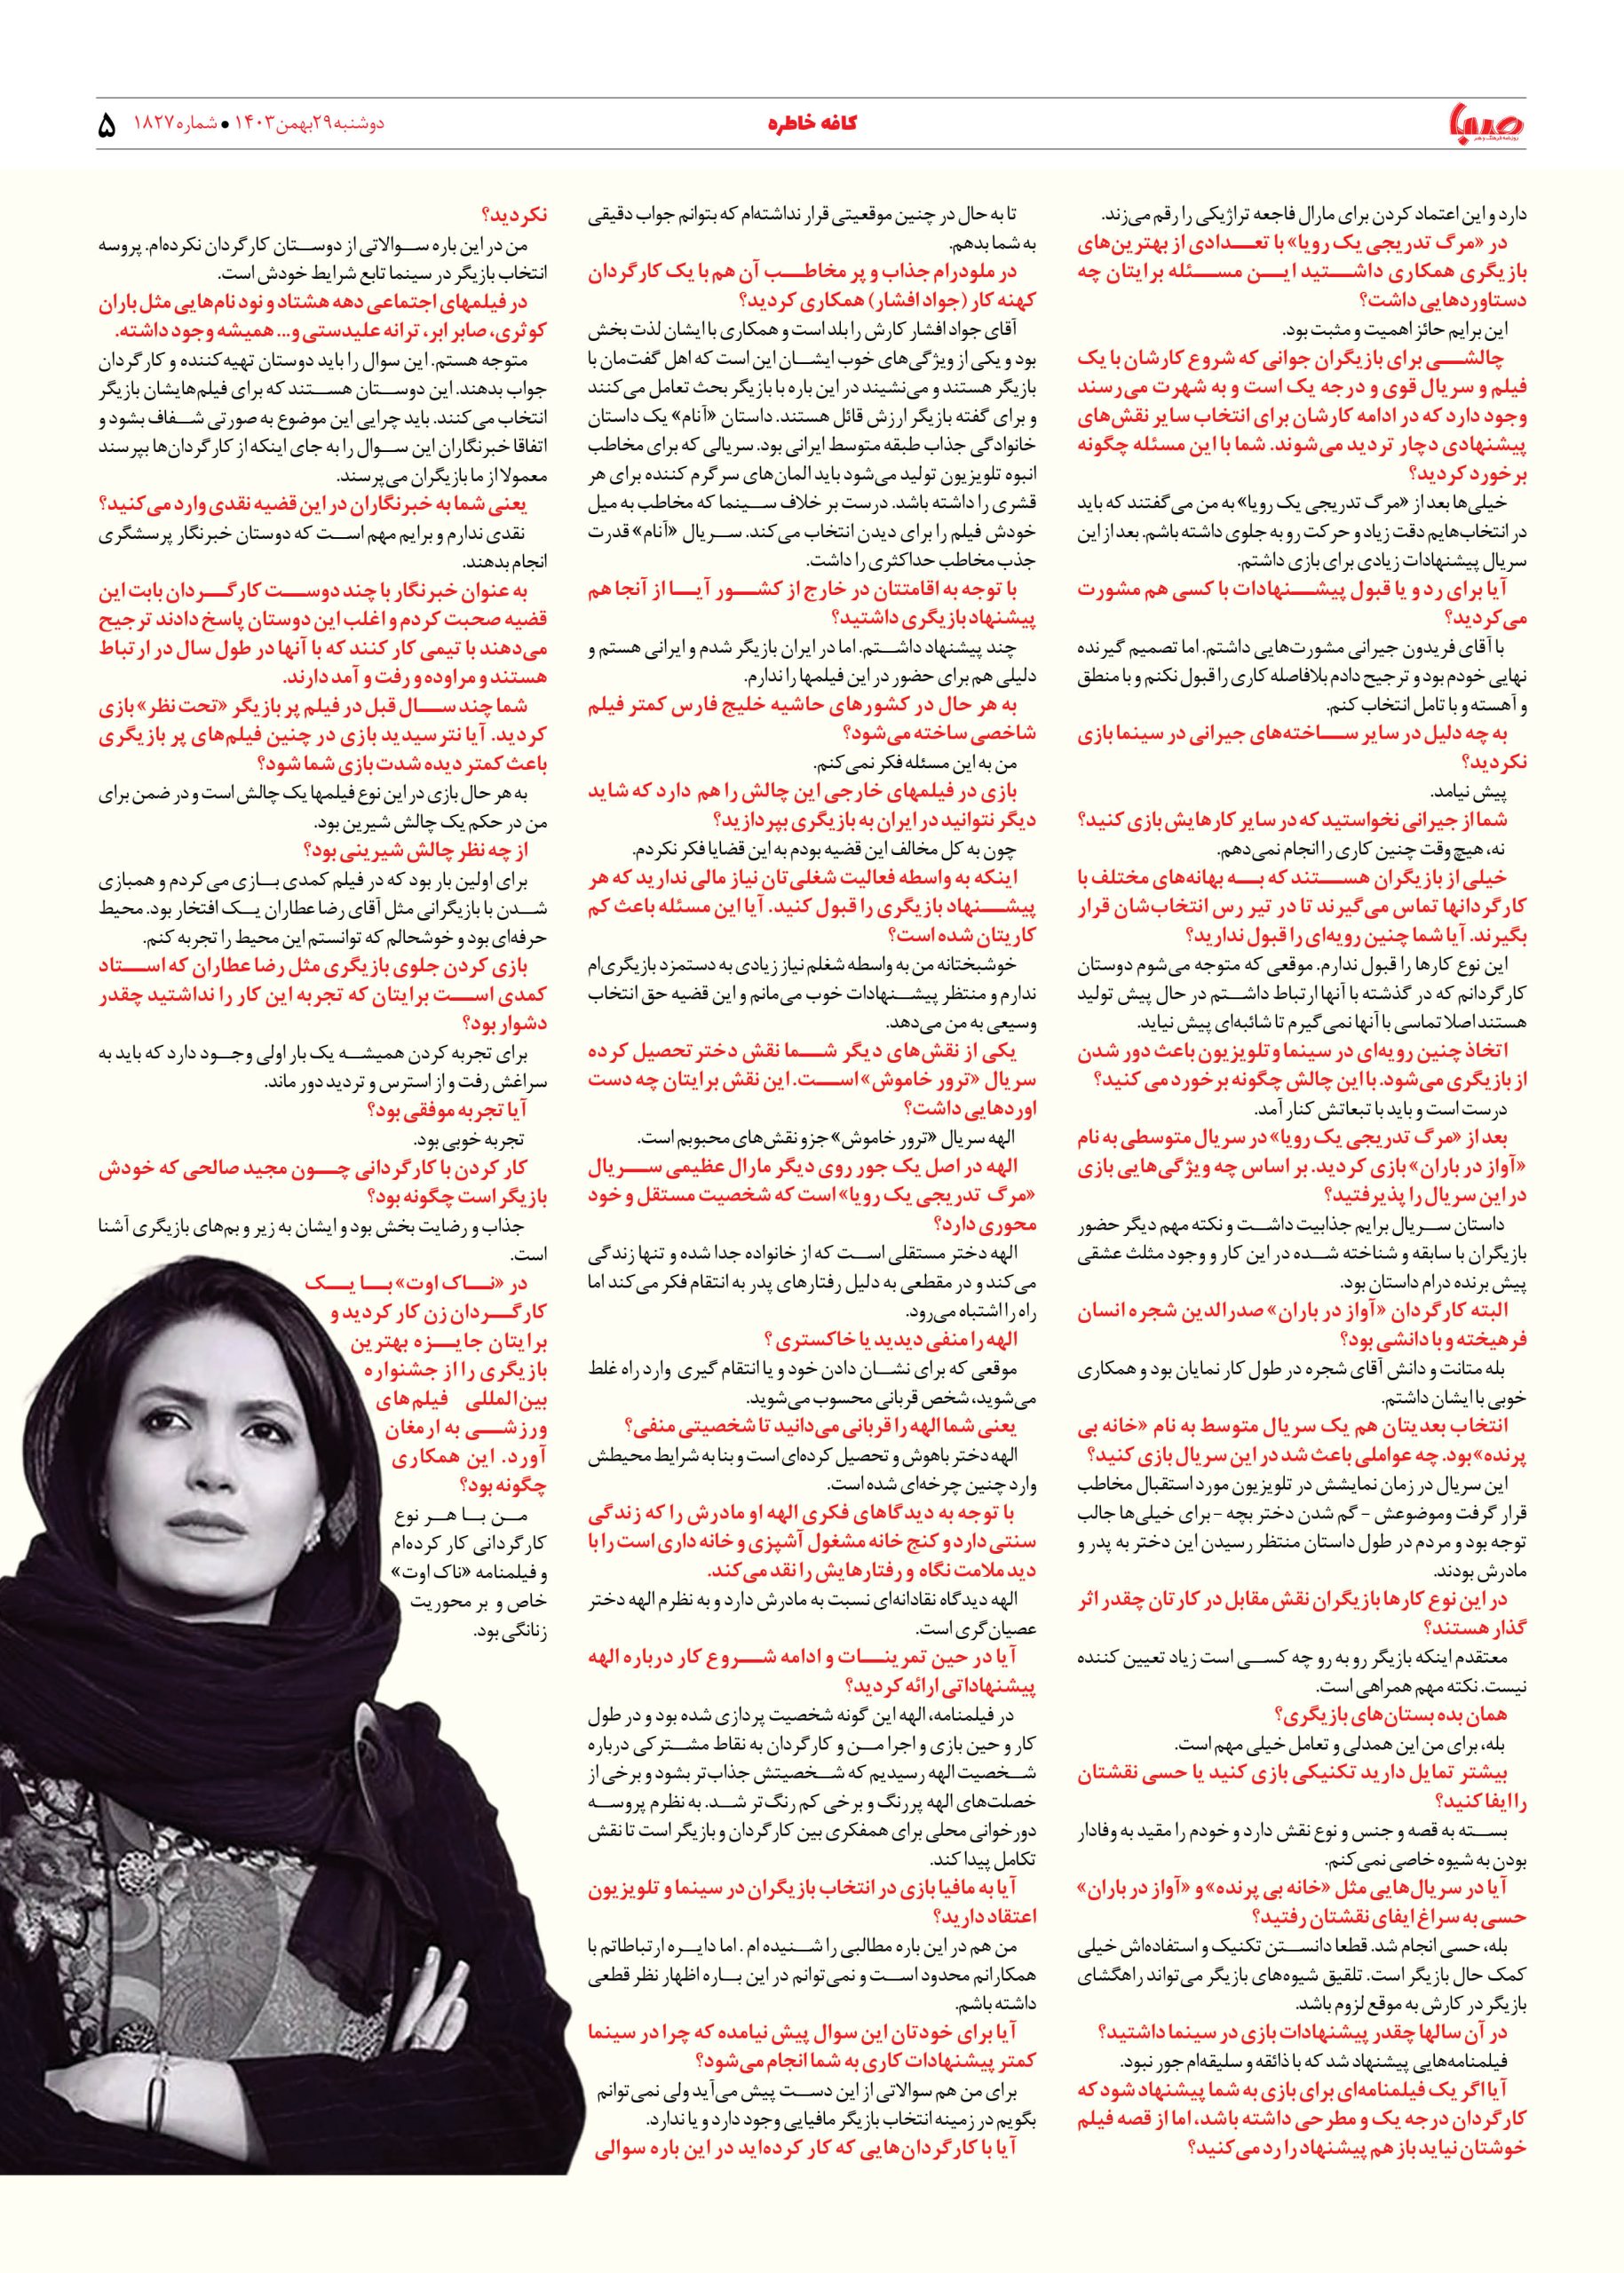 صبا
روزنامه فرهنگ و هنر
کافه خاطره
دوشنبه ۲۹ بهمن ۱۴۰۳ • شماره ۱۸۲۷
۵
دارد و این اعتماد کردن برای مارال فاجعه تراژیکی را رقم می‌زند.
در «مرگ تدریجی یک رویا» با تعدادی از بهترین‌های
بازیگری همکاری داشتید این مسئله برایتان چه
دستاوردهایی داشت؟
این برایم حائز اهمیت و مثبت بود.
چالشی برای بازیگران جوانی که شروع کارشان با یک
فیلم و سریال قوی و درجه یک است و به شهرت می‌رسند
وجود دارد که در ادامه کارشان برای انتخاب سایر نقش‌های
پیشنهادی دچار تردید می‌شوند. شما با این مسئله چگونه
برخورد کردید؟
خیلی‌ها بعد از «مرگ تدریجی یک رویا» به من می‌گفتند که باید
در انتخاب‌هایم دقت زیاد و حرکت رو به جلوی داشته باشم. بعد از این
سریال پیشنهادات زیادی برای بازی داشتم.
آیا برای رد و یا قبول پیشنهادات با کسی هم مشورت
می‌کردید؟
با آقای فریدون جیرانی مشورت‌هایی داشتم. اما تصمیم گیرنده
نهایی خودم بود و ترجیح دادم بلافاصله کاری را قبول نکنم و با منطق
و آهسته و با تامل انتخاب کنم.
به چه دلیل در سایر ساخته‌های جیرانی در سینما بازی
نکردید؟
پیش نیامد.
شما از جیرانی نخواستید که در سایر کارهایش بازی کنید؟
نه، هیچ وقت چنین کاری را انجام نمی‌دهم.
خیلی از بازیگران هستند که به بهانه‌های مختلف با
کارگردانها تماس می‌گیرند تا در تیر رس انتخاب‌شان قرار
بگیرند. آیا شما چنین رویه‌ای را قبول ندارید؟
این نوع کارها را قبول ندارم. موقعی که متوجه می‌شوم دوستان
کارگردانم که در گذشته با آنها ارتباط داشتم در حال پیش تولید
هستند اصلا تماسی با آنها نمی‌گیرم تا شائبه‌ای پیش نیاید.
اتخاذ چنین رویه‌ای در سینما و تلویزیون باعث دور شدن
از بازیگری می‌شود. با این چالش چگونه برخورد می کنید؟
درست است و باید با تبعاتش کنار آمد.
بعد از «مرگ تدریجی یک رویا» در سریال متوسطی به نام
«آواز در باران» بازی کردید. بر اساس چه ویژگی‌هایی بازی
در این سریال را پذیرفتید؟
داستان سریال برایم جذابیت داشت و نکته مهم دیگر حضور
بازیگران با سابقه و شناخته شده در این کار و وجود مثلث عشقی
پیش برنده درام داستان بود.
البته کارگردان «آواز در باران» صدرالدین شجره انسان
فرهیخته و با دانشی بود؟
بله متانت و دانش آقای شجره در طول کار نمایان بود و همکاری
خوبی با ایشان داشتم.
انتخاب بعدیتان هم یک سریال متوسط به نام «خانه بی
پرنده» بود. چه عواملی باعث شد در این سریال بازی کنید؟
این سریال در زمان نمایشش در تلویزیون مورد استقبال مخاطب
قرار گرفت وموضوعش - گم شدن دختر بچه - برای خیلی‌ها جالب
توجه بود و مردم در طول داستان منتظر رسیدن این دختر به پدر و
مادرش بودند.
در این نوع کارها بازیگران نقش مقابل در کارتان چقدر اثر
گذار هستند؟
معتقدم اینکه بازیگر رو به رو چه کسی است زیاد تعیین کننده
نیست. نکته مهم همراهی است.
همان بده بستان‌های بازیگری؟
بله، برای من این همدلی و تعامل خیلی مهم است.
بیشتر تمایل دارید تکنیکی بازی کنید یا حسی نقشتان
را ایفا کنید؟
بسته به قصه و جنس و نوع نقش دارد و خودم را مقید به وفادار
بودن به شیوه خاصی نمی‌کنم.
آیا در سریال‌هایی مثل «خانه بی پرنده» و «آواز در باران»
حسی به سراغ ایفای نقشتان رفتید؟
بله، حسی انجام شد. قطعا دانستن تکنیک و استفاده‌اش خیلی
کمک حال بازیگر است. تلقیق شیوه‌های بازیگر می‌تواند راهگشای
بازیگر در کارش به موقع لزوم باشد.
در آن سالها چقدر پیشنهادات بازی در سینما داشتید؟
فیلمنامه‌هایی پیشنهاد شد که با ذائقه و سلیقه‌ام جور نبود.
آیا اگر یک فیلمنامه‌ای برای بازی به شما پیشنهاد شود که
کارگردان درجه یک و مطرحی داشته باشد، اما از قصه فیلم
خوشتان نیاید باز هم پیشنهاد را رد می‌کنید؟
تا به حال در چنین موقعیتی قرار نداشته‌ام که بتوانم جواب دقیقی
به شما بدهم.
در ملودرام جذاب و پر مخاطب آن هم با یک کارگردان
کهنه کار (جواد افشار) همکاری کردید؟
آقای جواد افشار کارش را بلد است و همکاری با ایشان لذت بخش
بود و یکی از ویژگی‌های خوب ایشان این است که اهل گفت‌مان با
بازیگر هستند و می‌نشیند در این باره با بازیگر بحث تعامل می‌کنند
و برای گفته بازیگر ارزش قائل هستند. داستان «آنام» یک داستان
خانوادگی جذاب طبقه متوسط ایرانی بود. سریالی که برای مخاطب
انبوه تلویزیون تولید می‌شود باید المان‌های سرگرم کننده برای هر
قشری را داشته باشد. درست بر خلاف سینما که مخاطب به میل
خودش فیلم را برای دیدن انتخاب می‌کند. سریال «آنام» قدرت
جذب مخاطب حداکثری را داشت.
با توجه به اقامتتان در خارج از کشور آیا از آنجا هم
پیشنهاد بازیگری داشتید؟
چند پیشنهاد داشتم. اما در ایران بازیگر شدم و ایرانی هستم و
دلیلی هم برای حضور در این فیلمها را ندارم.
به هر حال در کشورهای حاشیه خلیج فارس کمتر فیلم
شاخصی ساخته می‌شود؟
من به این مسئله فکر نمی کنم.
بازی در فیلمهای خارجی این چالش را هم دارد که شاید
دیگر نتوانید در ایران به بازیگری بپردازید؟
چون به کل مخالف این قضیه بودم به این قضایا فکر نکردم.
اینکه به واسطه فعالیت شغلی‌تان نیاز مالی ندارید که هر
پیشنهاد بازیگری را قبول کنید. آیا این مسئله باعث کم
کاریتان شده است؟
خوشبختانه من به واسطه شغلم نیاز زیادی به دستمزد بازیگری‌ام
ندارم و منتظر پیشنهادات خوب می‌مانم و این قضیه حق انتخاب
وسیعی به من می‌دهد.
یکی از نقش‌های دیگر شما نقش دختر تحصیل کرده
سریال «ترور خاموش» است. این نقش برایتان چه دست
اوردهایی داشت؟
الهه سریال «ترور خاموش» جزو نقش‌های محبوبم است.
الهه در اصل یک جور روی دیگر مارال عظیمی سریال
«مرگ تدریجی یک رویا» است که شخصیت مستقل و خود
محوری دارد؟
الهه دختر مستقلی است که از خانواده جدا شده و تنها زندگی
می‌کند و در مقطعی به دلیل رفتارهای پدر به انتقام فکر می‌کند اما
راه را اشتباه می‌رود.
الهه را منفی دیدید یا خاکستری ؟
موقعی که برای نشان دادن خود و یا انتقام گیری وارد راه غلط
می‌شوید، شخص قربانی محسوب می‌شوید.
یعنی شما الهه را قربانی می‌دانید تا شخصیتی منفی؟
الهه دختر باهوش و تحصیل کرده‌ای است و بنا به شرایط محیطش
وارد چنین چرخه‌ای شده است.
با توجه به دیدگاهای فکری الهه او مادرش را که زندگی
سنتی دارد و کنج خانه مشغول آشپزی و خانه داری است را با
دید ملامت نگاه و رفتارهایش را نقد می‌کند.
الهه دیدگاه نقادانه‌ای نسبت به مادرش دارد و به نظرم الهه دختر
عصیان گری است.
آیا در حین تمرینات و ادامه شروع کار درباره الهه
پیشنهاداتی ارائه کردید؟
در فیلمنامه، الهه این گونه شخصیت پردازی شده بود و در طول
کار و حین بازی و اجرا من و کارگردان به نقاط مشترکی درباره
شخصیت الهه رسیدیم که شخصیتش جذاب‌تر بشود و برخی از
خصلت‌های الهه پررنگ و برخی کم رنگ‌تر شد. به نظرم پروسه
دورخوانی محلی برای همفکری بین کارگردان و بازیگر است تا نقش
تکامل پیدا کند.
آیا به مافیا بازی در انتخاب بازیگران در سینما و تلویزیون
اعتقاد دارید؟
من هم در این باره مطالبی را شنیده ام . اما دایره ارتباطاتم با
همکارانم محدود است و نمی‌توانم در این باره اظهار نظر قطعی
داشته باشم.
آیا برای خودتان این سوال پیش نیامده که چرا در سینما
کمتر پیشنهادات کاری به شما انجام می‌شود؟
برای من هم سوالاتی از این دست پیش می‌آید ولی نمی توانم
بگویم در زمینه انتخاب بازیگر مافیایی وجود دارد و یا ندارد.
آیا با کارگردان‌هایی که کار کرده‌اید در این باره سوالی
نکردید؟
من در این باره سوالاتی از دوستان کارگردان نکرده‌ام. پروسه
انتخاب بازیگر در سینما تابع شرایط خودش است.
در فیلمهای اجتماعی دهه هشتاد و نود نام‌هایی مثل باران
کوثری، صابر ابر، ترانه علیدستی و... همیشه وجود داشته.
متوجه هستم. این سوال را باید دوستان تهیه‌کننده و کارگردان
جواب بدهند. این دوستان هستند که برای فیلم‌هایشان بازیگر
انتخاب می‌کنند. باید چرایی این موضوع به صورتی شفاف بشود و
اتفاقا خبرنگاران این سوال را به جای اینکه از کارگردان‌ها بپرسند
معمولا از ما بازیگران می‌پرسند.
یعنی شما به خبرنگاران در این قضیه نقدی وارد می‌کنید؟
نقدی ندارم و برایم مهم است که دوستان خبرنگار پرسشگری
انجام بدهند.
به عنوان خبرنگار با چند دوست کارگردان بابت این
قضیه صحبت کردم و اغلب این دوستان پاسخ دادند ترجیح
می‌دهند با تیمی کار کنند که با آنها در طول سال در ارتباط
هستند و مراوده و رفت و آمد دارند.
شما چند سال قبل در فیلم پر بازیگر «تحت نظر» بازی
کردید. آیا نترسیدید بازی در چنین فیلم‌های پر بازیگری
باعث کمتر دیده شدت بازی شما شود؟
به هر حال بازی در این نوع فیلمها یک چالش است و در ضمن برای
من در حکم یک چالش شیرین بود.
از چه نظر چالش شیرینی بود؟
برای اولین بار بود که در فیلم کمدی بازی می‌کردم و همبازی
شدن با بازیگرانی مثل آقای رضا عطاران یک افتخار بود. محیط
حرفه‌ای بود و خوشحالم که توانستم این محیط را تجربه کنم.
بازی کردن جلوی بازیگری مثل رضا عطاران که استاد
کمدی است برایتان که تجربه این کار را نداشتید چقدر
دشوار بود؟
برای تجربه کردن همیشه یک بار اولی وجود دارد که باید به
سراغش رفت و از استرس و تردید دور ماند.
آیا تجربه موفقی بود؟
تجربه خوبی بود.
کار کردن با کارگردانی چون مجید صالحی که خودش
بازیگر است چگونه بود؟
جذاب و رضایت بخش بود و ایشان به زیر و بم‌های بازیگری آشنا
است.
در «ناک اوت» با یک
کارگردان زن کار کردید و
برایتان جایزه بهترین
بازیگری را از جشنواره
بین‌المللی فیلم‌های
ورزشی به ارمغان
آورد. این همکاری
چگونه بود؟
من با هر نوع
کارگردانی کار کرده‌ام
و فیلمنامه «ناک اوت»
خاص و بر محوریت
زنانگی بود.